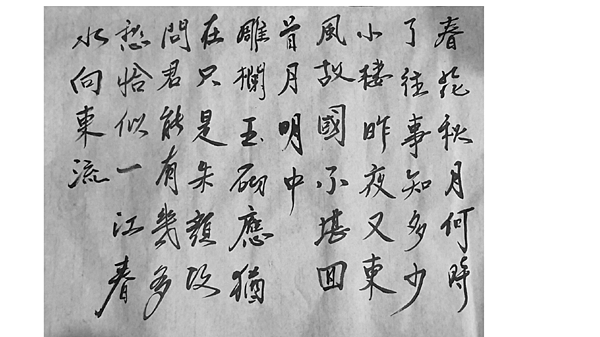 春花秋月何時
了往事知多少
小楼昨夜又東
風故國不堪回
首月明中
雕欄玉砌應猶
在只是朱顏改
問君能有幾多
愁恰似一江春
水向東流